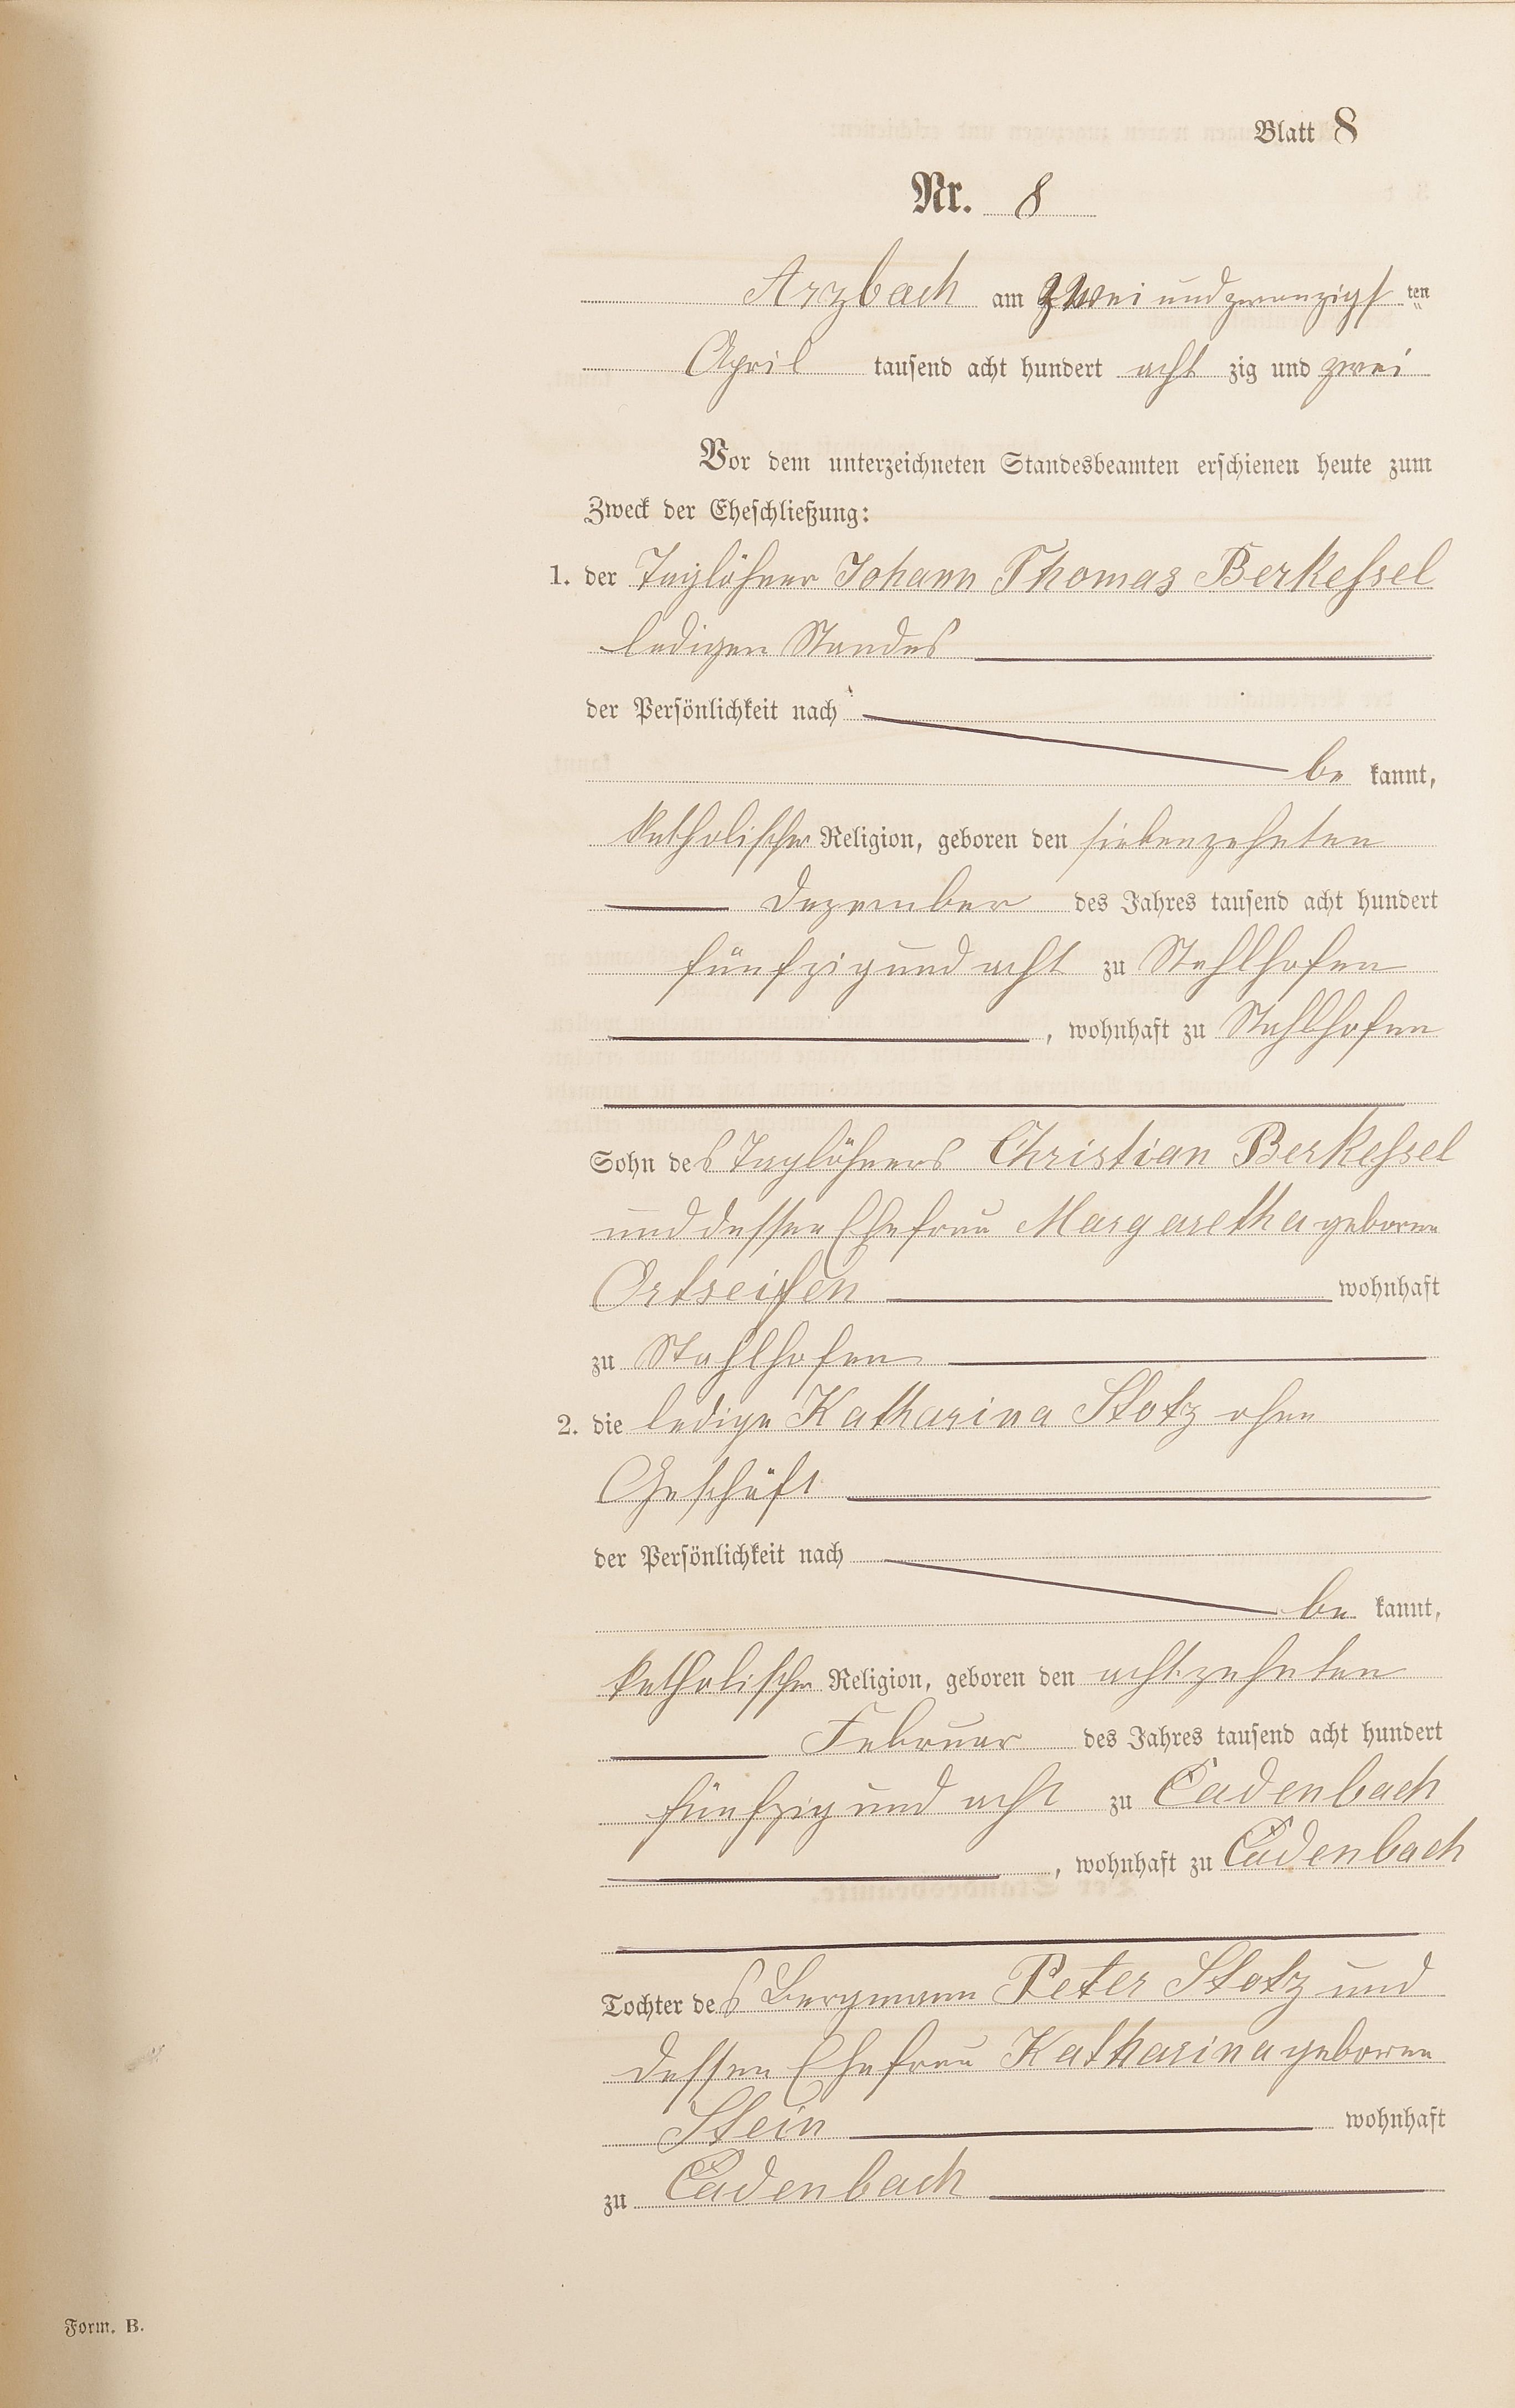 Blatt 8
Nr. 8
Arzbach am zweiundzwanzigsten
April tausend acht hundert acht zig und zwei
Vor dem unterzeichneten Standesbeamten erschienen heute zum
Zweck der Eheschließung:
1. der Taglöhner Johann Thomas Berkessel
ledigen Standes
der Persönlichkeit nach
be kannt,
katholischer Religion, geboren den siebenzehnten
Dezember des Jahres tausend acht hundert
fünfzig und acht zu Stahlhofen
, wohnhaft zu Stahlhofen
Sohn des Taglöhners Christian Berkessel
und dessen Ehefrau Margaretha geborene
Ortseifen wohnhaft
zu Stahlhofen
2. die ledige Katharina Stotz ohne
Geschäft
der Persönlichkeit nach
be kannt,
katholischer Religion, geboren den achtzehnten
Februar des Jahres tausend acht hundert
fünfzig und acht zu Cadenbach
, wohnhaft zu Cadenbach
Tochter des Bergmann Peter Stotz und
dessen Ehefrau Katharina geborene
Stein wohnhaft
zu Cadenbach
Form. B.